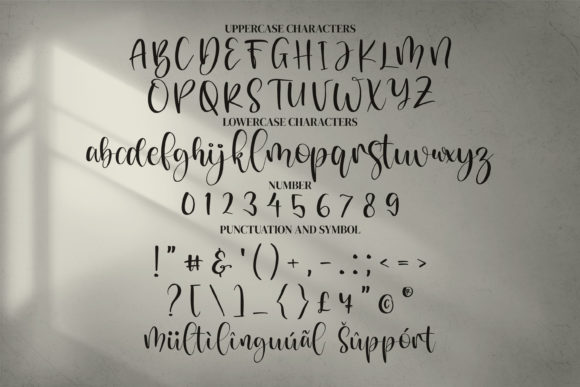 UPPERCASE CHARACTERS
ABCDEFGHIJKLMN
OPQRSTUVWXYZ
LOWERCASE CHARACTERS
abcdefghijklmopqrstuvwxyz
NUMBER
0 1 2 3 4 5 6 7 8 9
PUNCTUATION AND SYMBOL
! " # & ' ( ) + , - . : ; < = >
? [ \ ] _ { } £ ¥ " © ®
müìltìlînguúãl Šûppórt